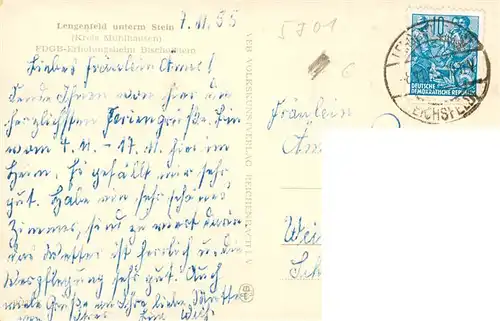 Lengenfeld unterm Stein
(Kreis Mühlhausen)
FDGB-Erholungsheim Bischofstein
7.11.55
5701
6
Liebes Fräulein Anne!
Sende Ihnen von hier die
herzlichsten Feriengrüße. Bin
vom 4.11. - 17.11. hier im
Heim. Es gefällt mir sehr
gut. Habe ein sehr schönes
Zimmer,
das Wetter ist herrlich u. die
Verpflegung sehr gut. Auch
viele Grüße an Ihre liebe Mutter
VEB VOLKSKUNSTVERLAG REICHENBACH i. V.
Fräulein
An
Wei
Sch
10
DEUTSCHE
DEMOKRATISCHE REPUBLIK
EICHSFELD